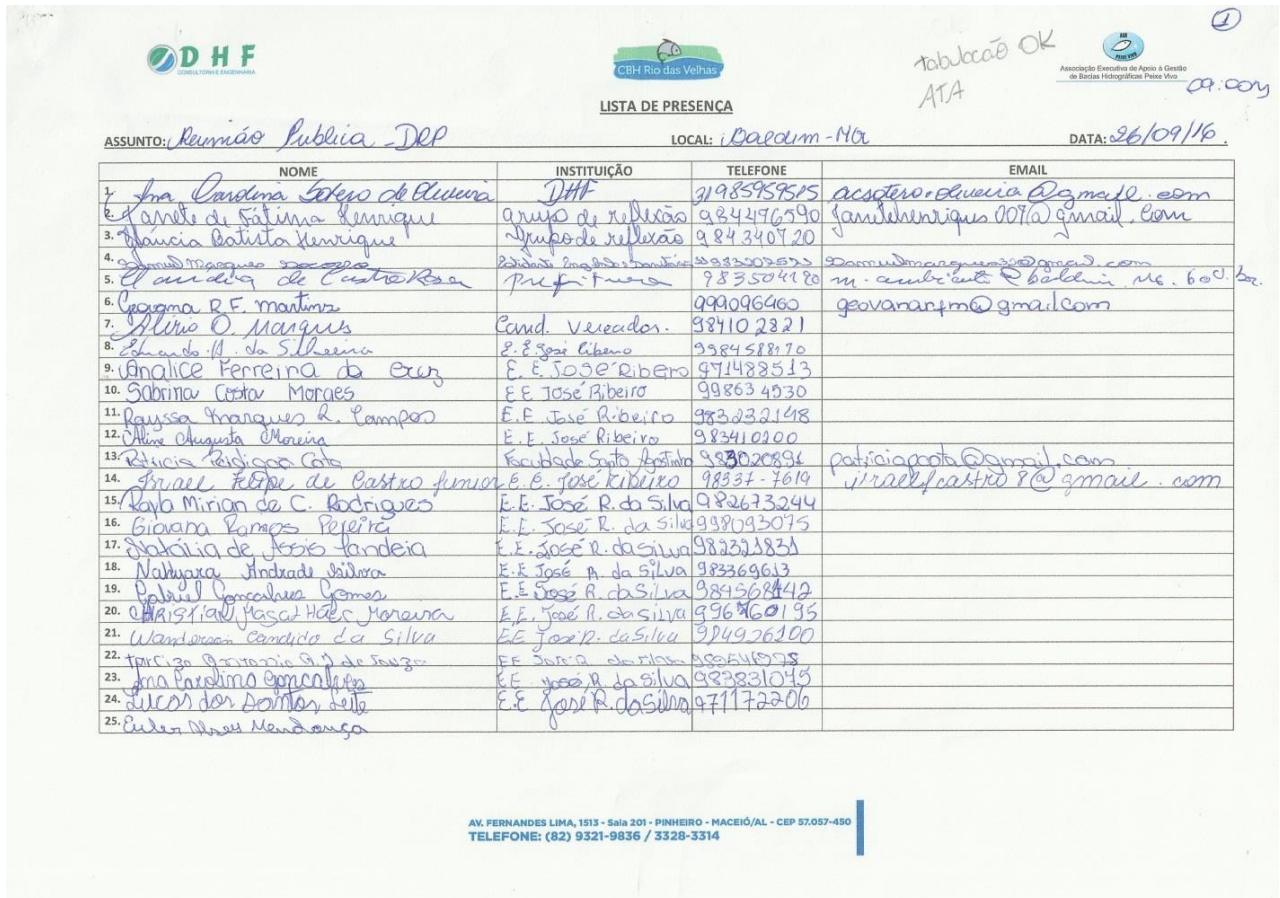 1
DHF
CONSULTORIA E ENGENHARIA
CBH Rio das Velhas
tabulação OK
ATA
Associação Executiva de Apoio à Gestão
de Bacias Hidrográficas Peixe Vivo
09:00
LISTA DE PRESENÇA
ASSUNTO: Reunião Publica - DRP LOCAL: Baldim-MG DATA: 26/09/16.
NOME INSTITUIÇÃO TELEFONE EMAIL
1. Ana Carolina Sotero de Oliveira DHF 31985959515 acsotero.oliveira@gmail.com
2. Janete de Fátima Henrique grupo de reflexão 984476590 janetehenrique007@gmail.com
3. Gláucia Batista Henrique Grupo de reflexão 984340720
4. Samuel Marques
5. Claudia de Castro Rosa Prefeitura 983504120
6. Geovana R.F. Martins 999096460 geovanarfm@gmail.com
7. Alírio O. Marques Cand. Vereador. 984102821
8. Eduardo A. da Silveira E.E. José Ribeiro 9984588170
9. Analice Ferreira da Cruz E.E José Ribero 971488513
10. Sabrina Costa Moraes EE José Ribeiro 998634530
11. Rayssa Marques R. Campos E.E José Ribeiro 983232148
12. Aline Augusta Moreira E.E. José Ribeiro 983410200
13. Patrícia Cota Faculdade Santo Agostinho 983020891 patriciapcota@gmail.com
14. Israel Felipe de Castro Junior E.E. José Ribeiro 98337-7619 israelfcastro8@gmail.com
15. Rayla Mirian de C. Rodrigues E.E. José R. da Silva 982673244
16. Giovana Ramos Pereira E.E. José R. da Silva 998093075
17. Natália de Assis Landeia E.E. José R. da Silva 982321831
18. Nahyara Andrade Silva E.E José R. da Silva 983369613
19. Gabriel Gonçalves Gomes E.E José R. da Silva 984568142
20. CHRISTIAN Magalhães Moreira E.E. José R. da Silva 996760195
21. Wanderson Candido da Silva EE José R. da Silva 984926100
22. Tarcizo Antonio de Souza EE José R. da Silva
23. Ana Carolina Gonçalves EE José R. da Silva 983831075
24. Lucas dos Santos Leite E.E José R. da Silva 971172206
25. Euler Alves Mendonça
AV. FERNANDES LIMA, 1513 - Sala 201 - PINHEIRO - MACEIÓ/AL - CEP 57.057-450
TELEFONE: (82) 9321-9836 / 3328-3314